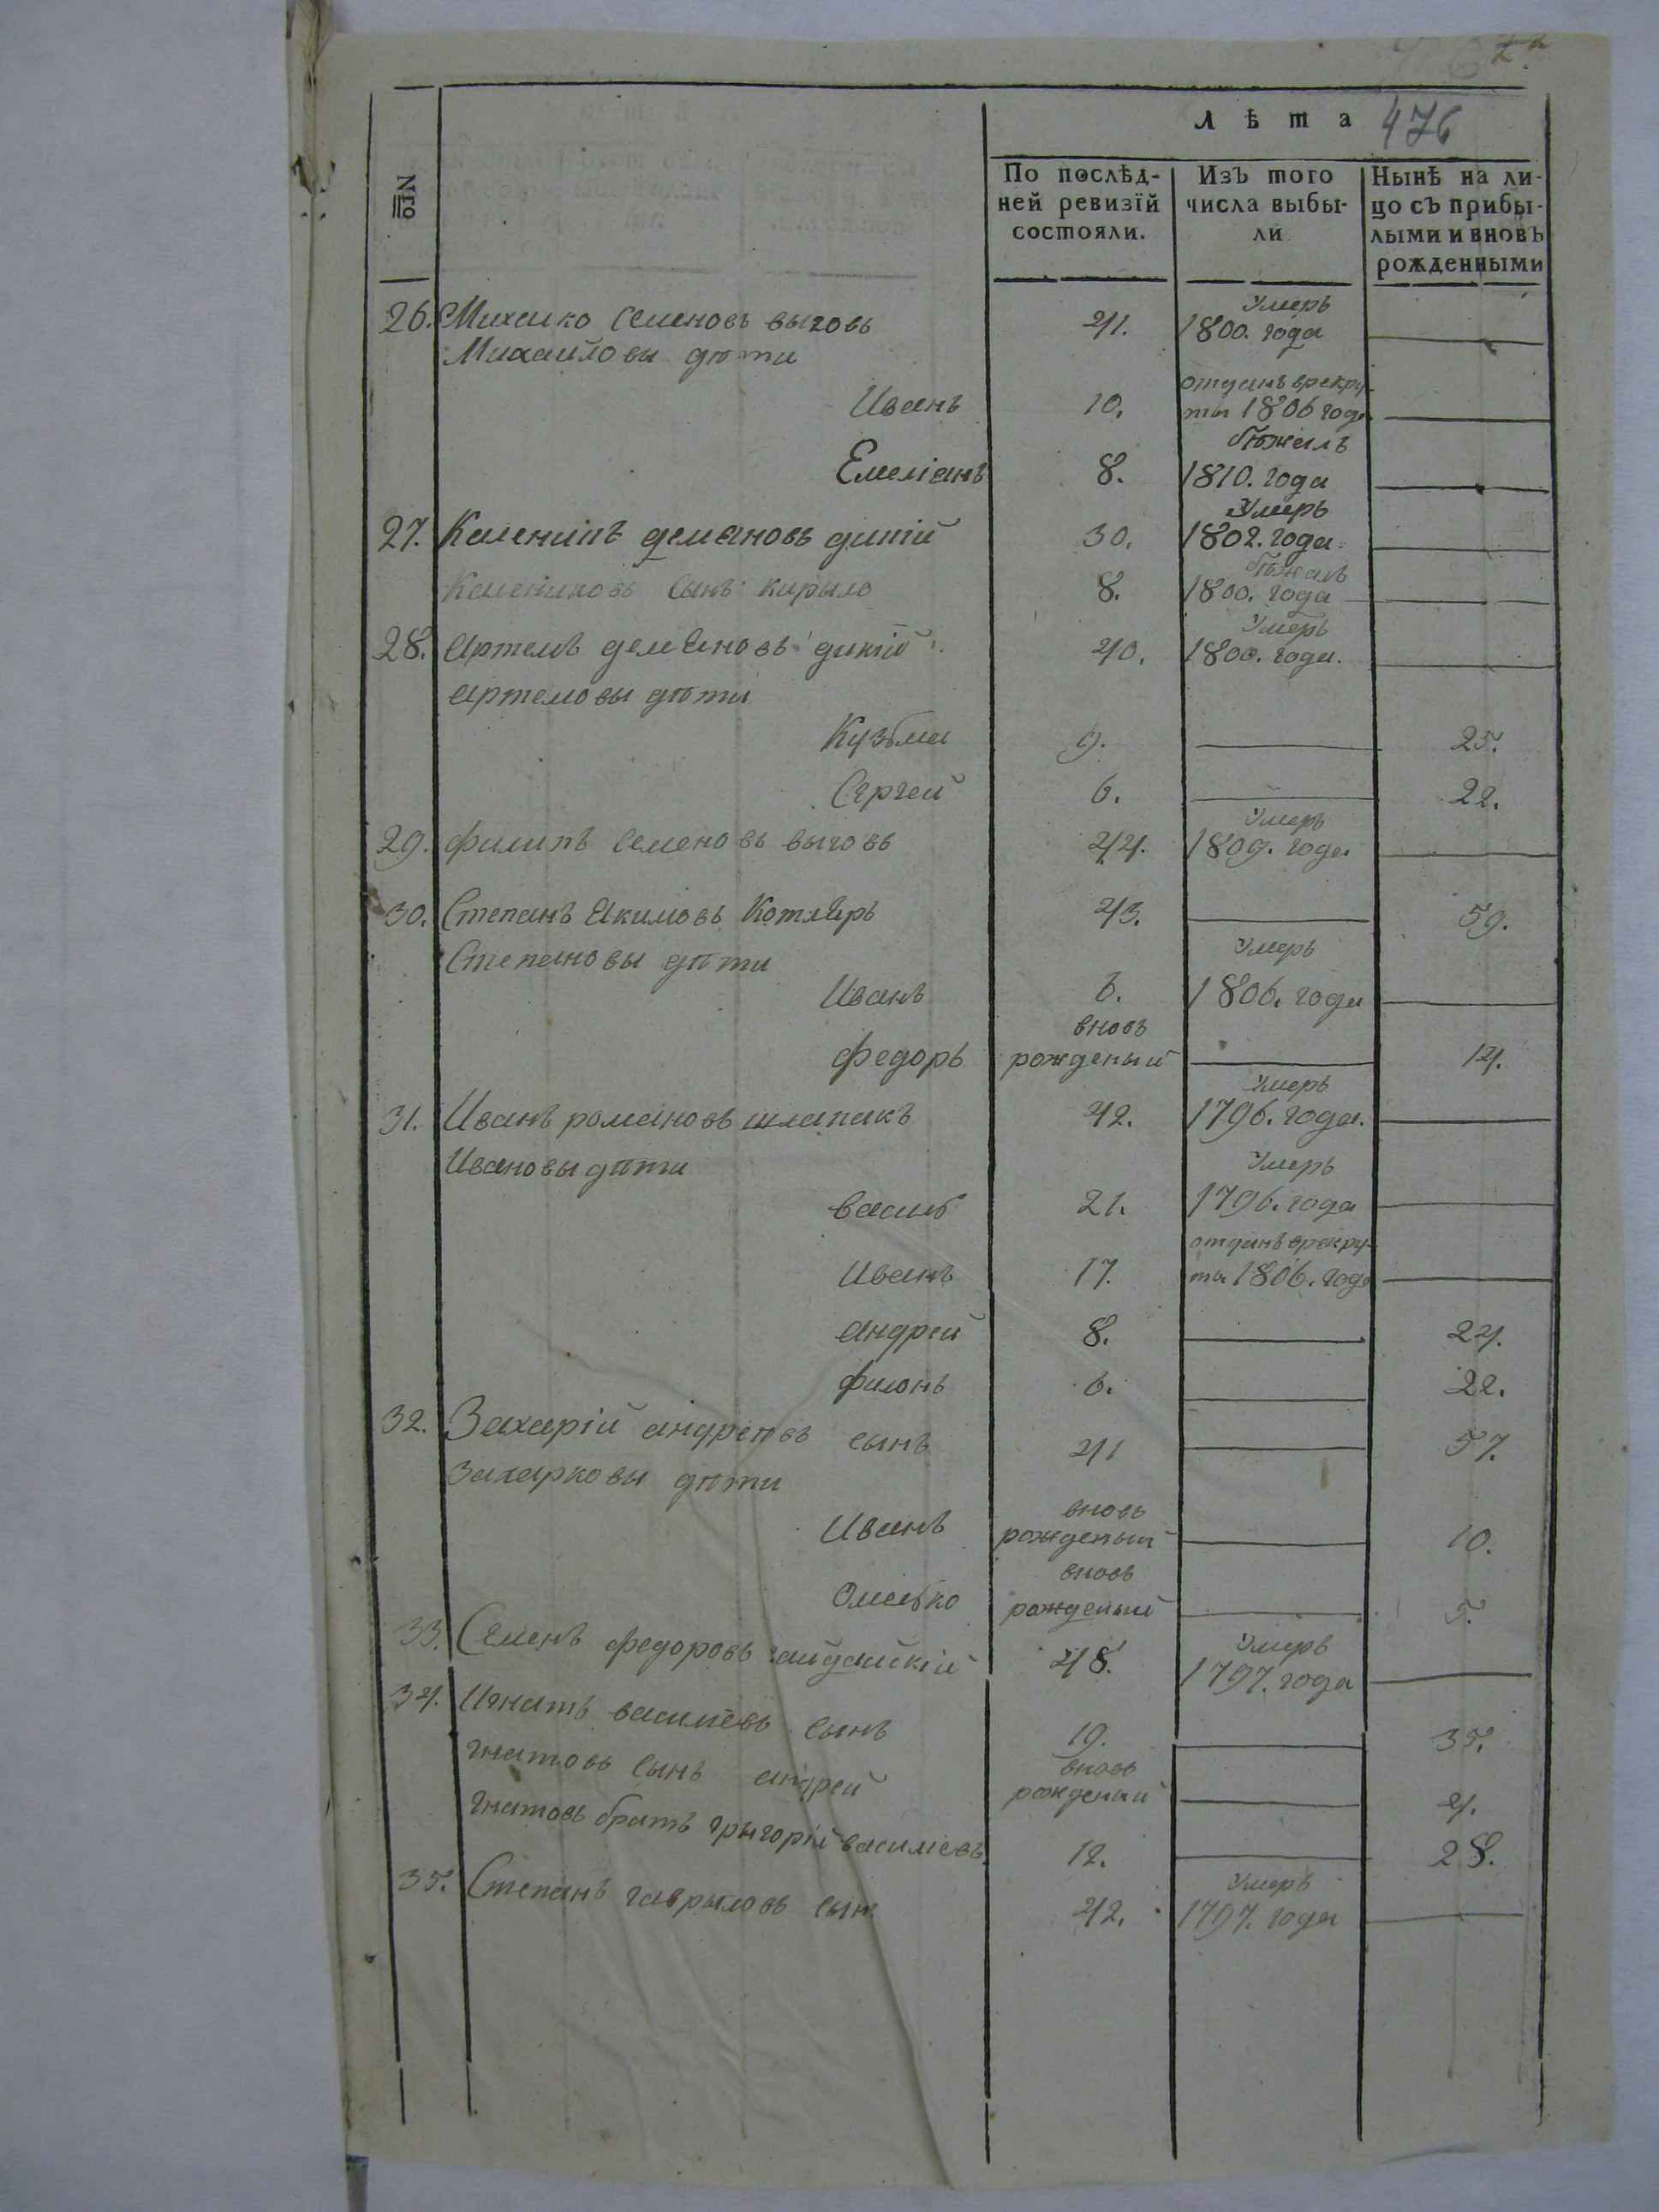 476
Лѣта
№го
По послѣд-
ней ревизїи
состояли.
Изъ того
числа выбы-
ли
Нынѣ на ли-
цо съ прибы-
лыми и вновь
рожденными
26. Михаило Семеновъ выговъ 41. Умеръ 1800. года
Михайловы дѣти
Иванъ 10. отданъ врекру-
ты 1806 года
Емелiанъ 8. бѣжалъ 1810. года
27. Каленикъ демяновъ дикiй 30. Умеръ 1802. года
Калениковъ Сынъ кирыло 8. бѣжалъ 1800. года
28. Артемъ демяновъ дикiй 40. Умеръ 1800. года.
артемовы дѣти
Кузьма 9. 25.
Сергей 6. 22.
29. филипъ Семеновъ выговъ 44. Умеръ 1809. года
30. Степанъ Якимовъ Котляръ 43. 59.
Степановы дѣти
Иванъ 6. Умеръ 1806. года
федоръ вновь рожденый 14.
31. Иванъ романовъ шлапакъ 42. Умеръ 1796. года.
Ивановы дѣти
василь 21. Умеръ 1796. года
Иванъ 17. отданъ врекру-
ты 1806. года
андрей 8. 24.
филонъ 6. 22.
32. Захарiй андреевъ сынъ 41 57.
Захарковы дѣти
Иванъ вновь рожденый 10.
Омелько вновь рожденый 5.
33. Семенъ федоровъ 48. Умеръ 1797. года
34. Игнатъ василiевъ Сынъ 19. 35.
гнатовъ Сынъ андрей вновь рожденый 4.
гнатовъ братъ грыгорiй василiевъ 12. 28.
35. Степанъ гаврыловъ сын 42. Умеръ 1797. года